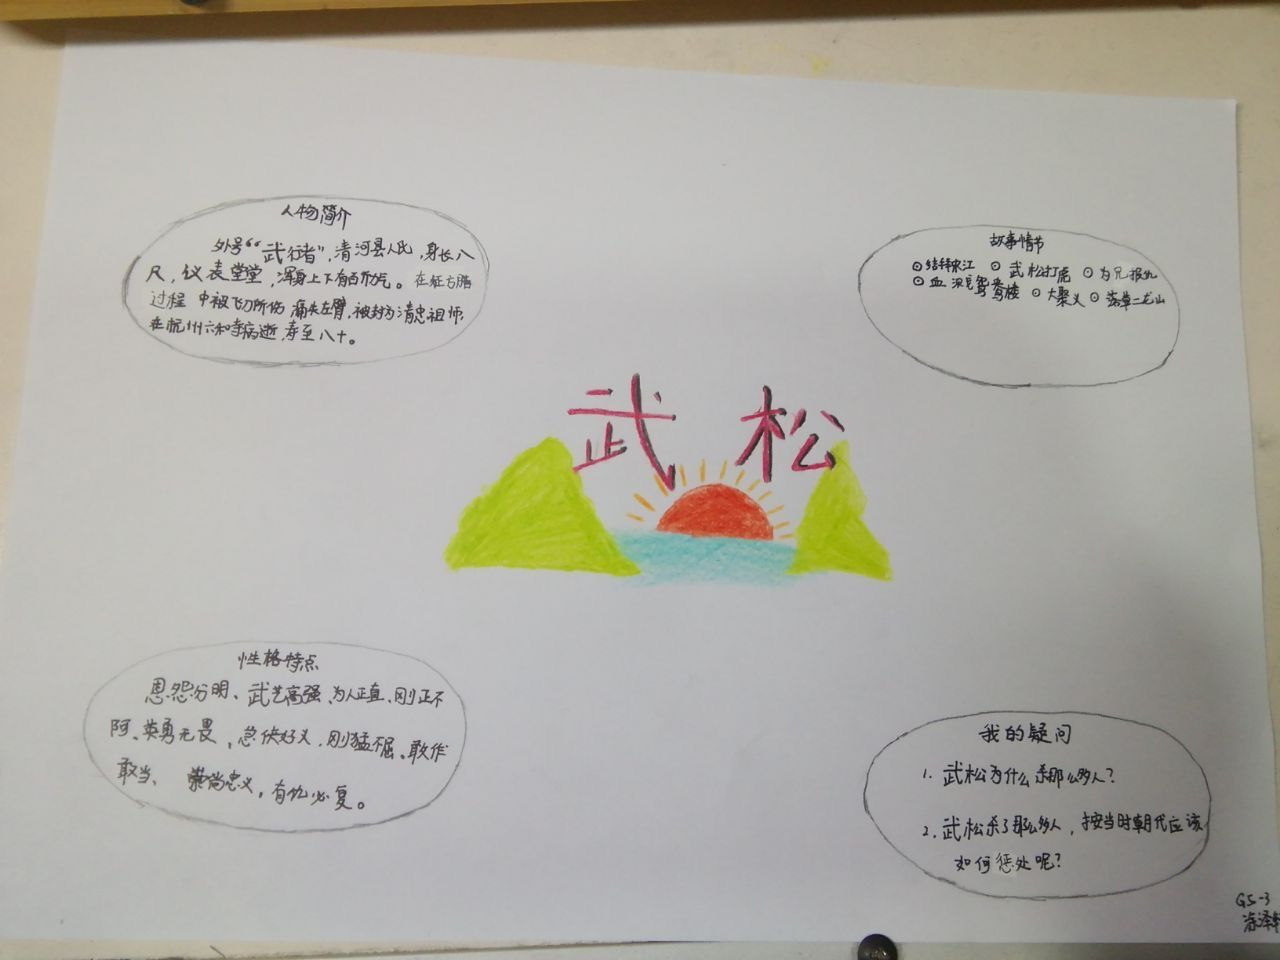 人物简介
外号“武行者”，清河县人氏，身长八
尺，仪表堂堂，浑身上下有百斤力气。在征方腊
过程中被飞刀所伤痛失左臂，被封为清忠祖师，
在杭州六和寺病逝，寿至八十。
故事情节
⊙结拜宋江 ⊙武松打虎 ⊙为兄报仇
⊙血溅鸳鸯楼 ⊙大聚义 ⊙落草二龙山
武松
性格特点
恩怨分明、武艺高强、为人正直、刚正不
阿、英勇无畏、急侠好义、刚猛不屈、敢作
敢当、崇尚忠义，有仇必复。
我的疑问
1. 武松为什么杀那么多人？
2. 武松杀了那么多人，按当时朝代应该
如何惩处呢？
G5-3
涂泽